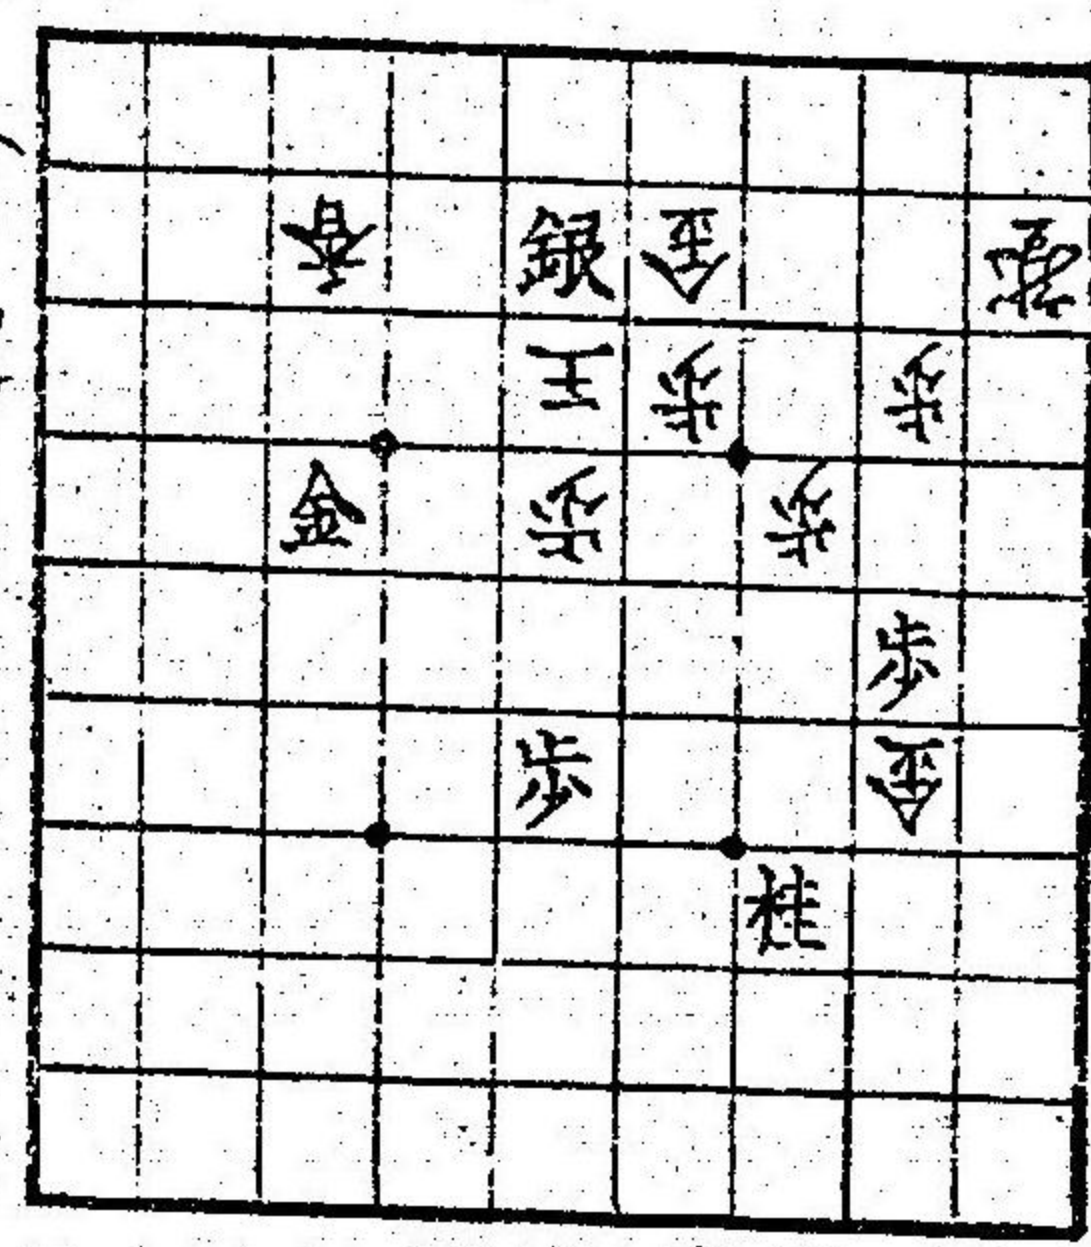 香 銀 金
王 歩 歩
金 歩 歩
歩
歩 金
桂